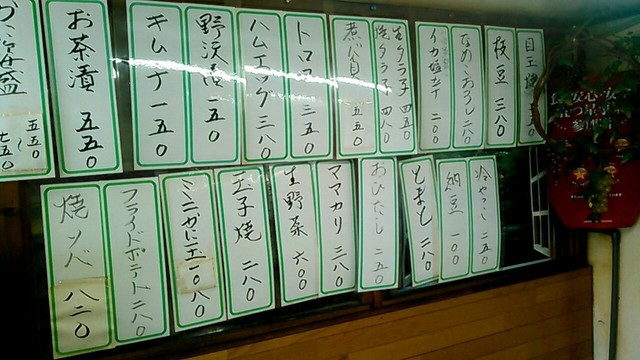 目玉焼
枝豆 三八〇
なめこおろし 二八〇
イカ塩辛 二〇〇
生タラコ 四五〇
焼タラコ 四八〇
五五〇
トロロ 二五〇
ハムエッグ 三八〇
野沢漬 一五〇
キムチ 一五〇
お茶漬 五五〇
五五〇
七五〇
冷やっこ 二五〇
納豆 一〇〇
とまと 二八〇
おひたし 二五〇
ママカリ 三八〇
生野菜 六〇〇
玉子焼 二八〇
ミニかに玉 一〇八〇
フライドポテト 二八〇
焼ソバ 八二〇